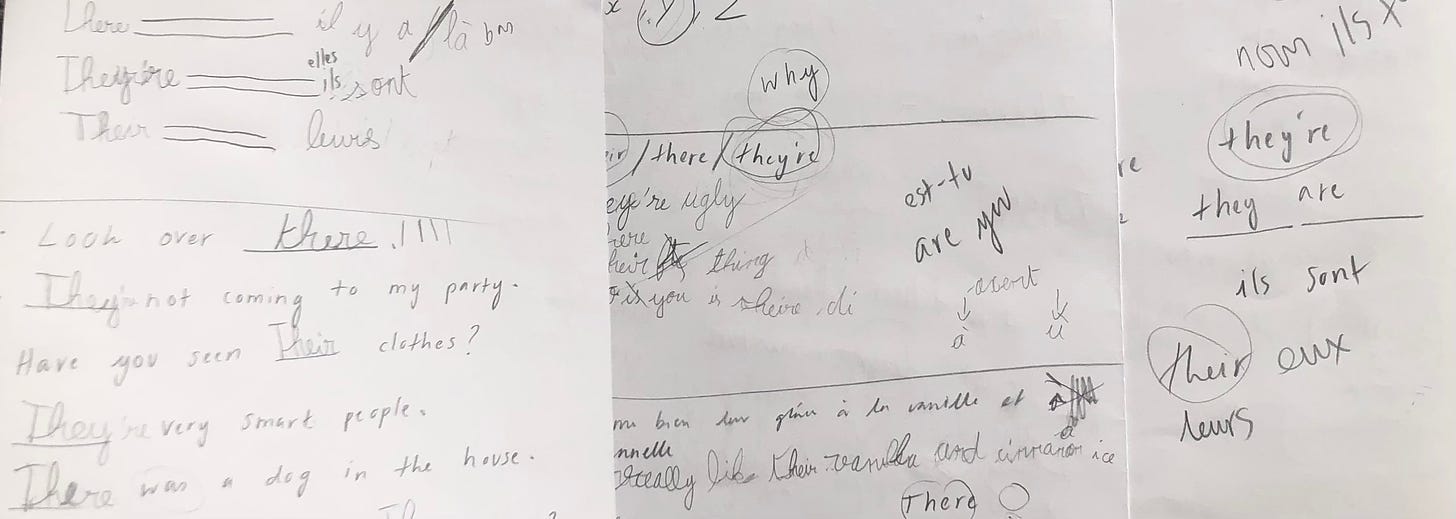 There il y a / là bas
elles
They're ils sont
Their leurs
Look over there !!!!
They're not coming to my party.
Have you seen Their clothes?
They're very smart people.
There was a dog in the house.
why
/there/they're
ey're ugly
thing
you is
est-tu
are you
accent
à ù
bien leur glace à la vanille et
nnelle
really like their vanilla and cinnamon ice
There
nom ils
they're
they are
ils sont
their eux
leurs